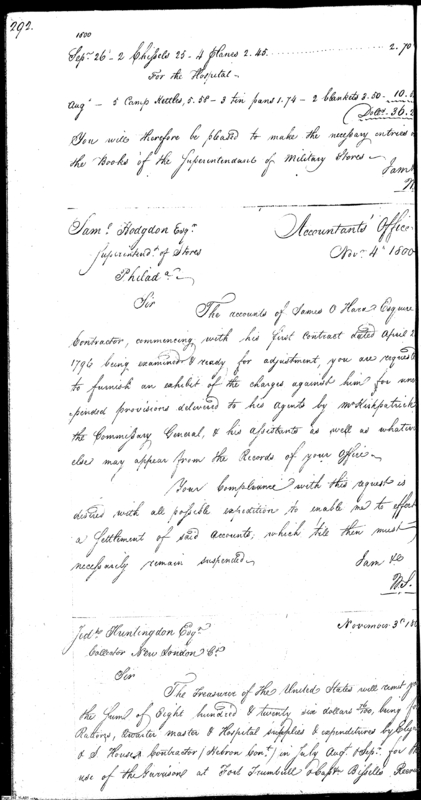 292.
1800
Sepr. 26 - 2 Chissels 25 - 4 Planes 2.45 2.70
For the Hospital -
Augt - 5 Camp Kettles, 5.58 - 3 tin pans 1.74 - 2 blankets 3.50 - 10.
Dolrs. 36.2
You will therefore be pleased to make the necessary entries
the Books of the Superintendant of Military Stores -
I am
W
Saml. Hodgdon Esqr.
Superintendt. of Stores
Philada.
Accountants' Office
Novr. 4th 1800
Sir
The accounts of James O Hara Esquire
Contractor, commencing with his first Contract dated April 2
1796 being examined & ready for adjustment, you are request
to furnish an exhibit of the charges against him for unex
pended provisions delivered to his Agents by Mr Kirkpatrick
the Commissary General, & his Assistants as well as whatever
else may appear from the Records of your Office -
Your Compliance with this request is
desired with all possible expedition to enable me to effect
a Settlement of said Accounts, which 'tile then must
necessarily remain suspended -
I am &c
W.S.
Jedh. Huntingdon Esqr.
Collector New London Ct.
November 3d. 180
Sir
The Treasurer of the United States will remit yo
the sum of Eight hundred & twenty six dollars being f
Rations, Quarter master & Hospital supplies & expenditures by
& S House, Contractor (Hebron Cont.) in July Augt. & Sepr. for the
use of the Garrison at Fort Trumbull & Captn Bissells